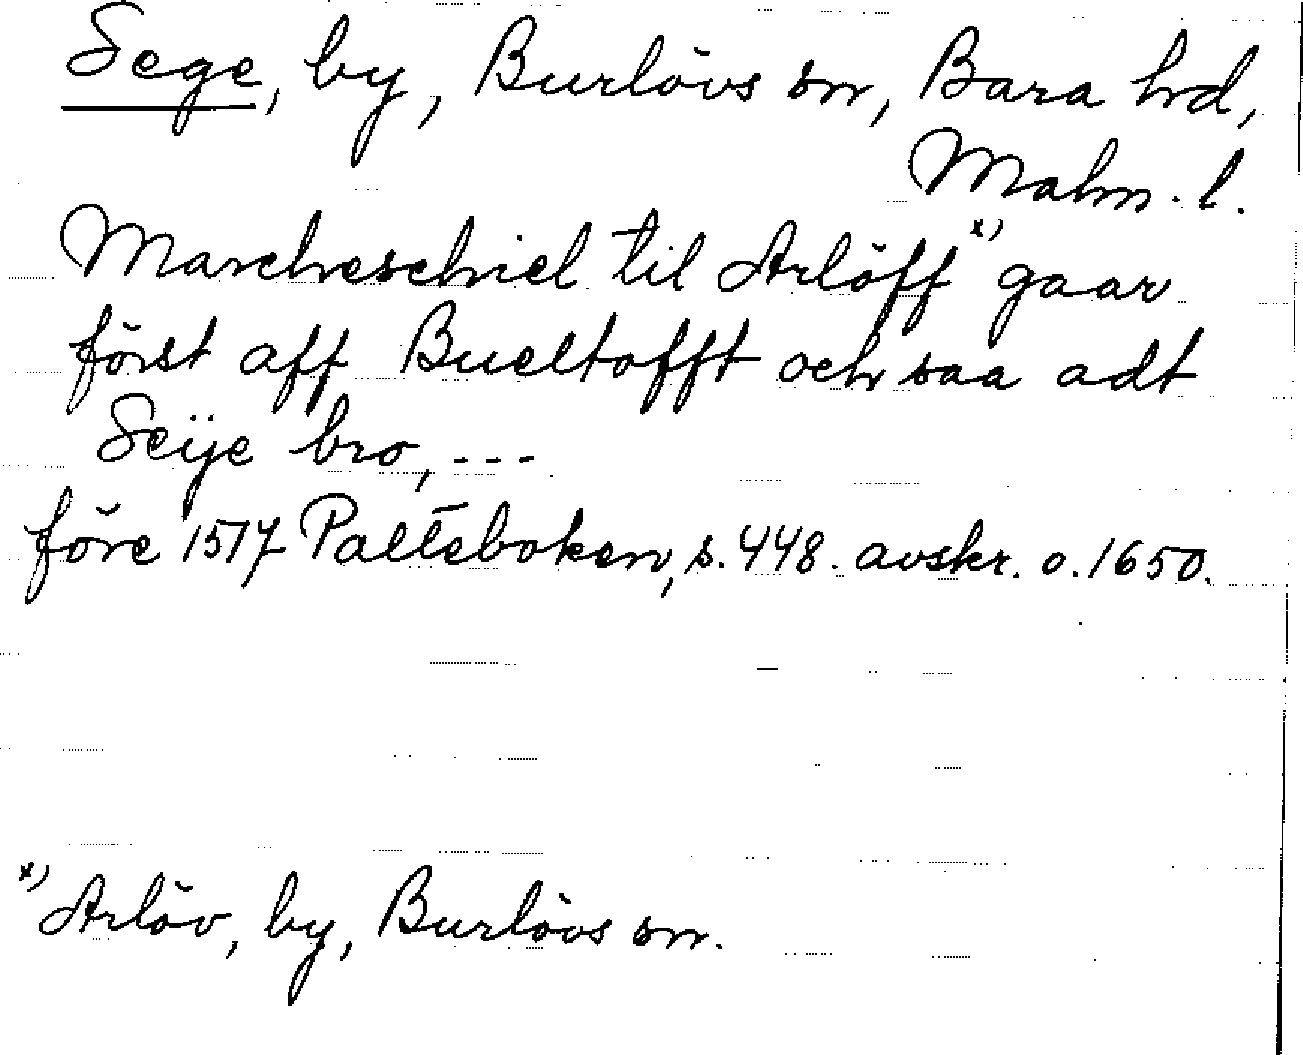 Sege, by, Burlövs sn, Bara hd,
Malm. l.
Marcheschiel til Arlöff x) gaar
först aff Bueltofft och saa adt
Seÿe bro, ---
före 1517 Palteboken, s. 448. avskr. o. 1650.
x) Arlöv, by, Burlövs sn.